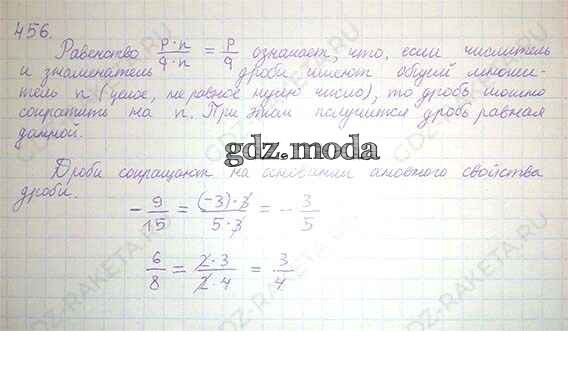 456.
Равенство p·n/q·n = p/q означает, что, если числитель
и знаменатель дроби имеют общий множи-
тель n (целое, не равное нулю число), то дробь можно
сократить на n. При этом получится дробь равная
данной.
gdz.moda
Дроби сокращают на основании основного свойства
дроби.
- 9/15 = (-3)·3/5·3 = - 3/5
6/8 = 2·3/2·4 = 3/4
GDZ-RAKETA.RU